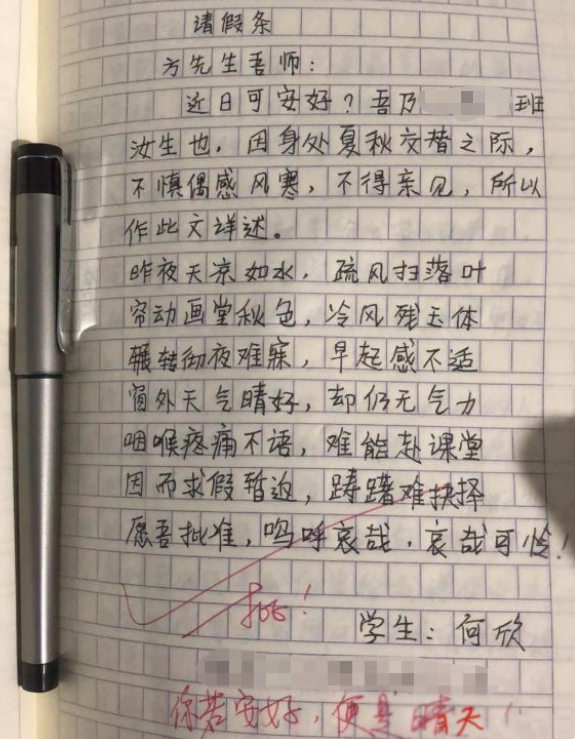 请假条
方先生吾师：
近日可安好？吾乃 班
汝生也，因身处夏秋交替之际，
不慎偶感风寒，不得亲见，所以
作此文详述。
昨夜天凉如水，疏风扫落叶
帘动画堂秋色，冷风残玉体
辗转彻夜难寐，早起感不适
窗外天气晴好，却仍无气力
咽喉疼痛不语，难能赴课堂
因而求假暂迫，踌躇难抉择
愿吾批准，呜呼哀哉，哀哉可怜！
批！
学生：何欣
你若安好，便是晴天！